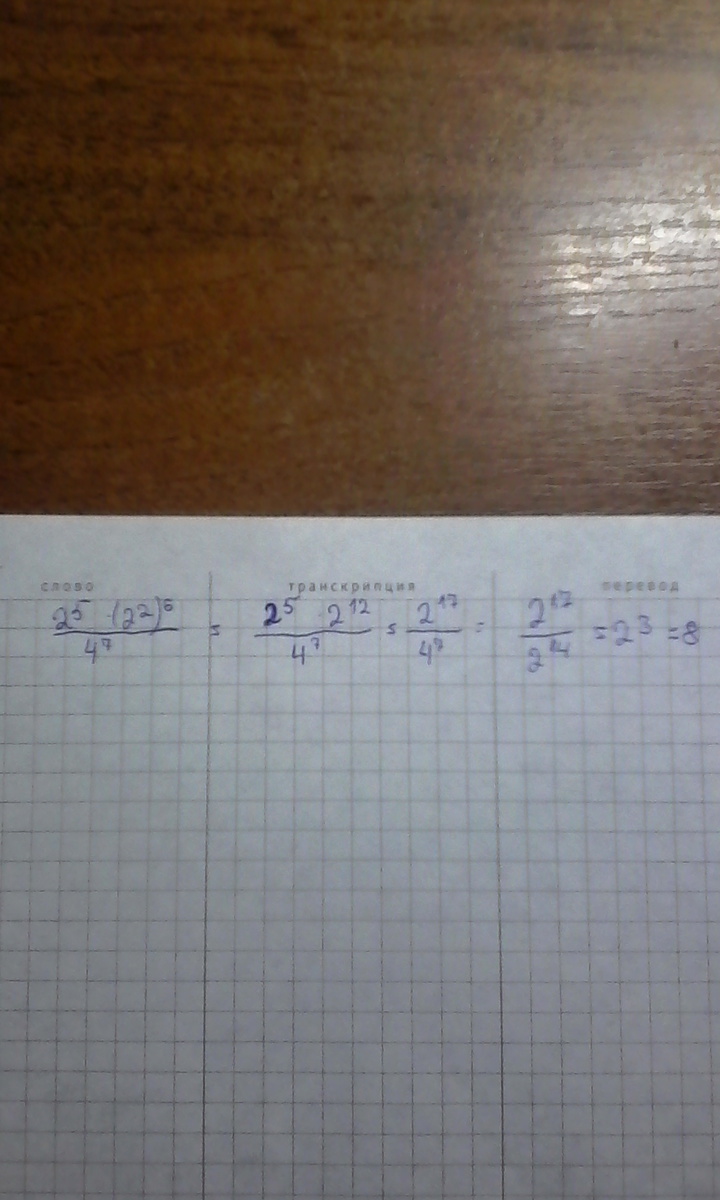 слово транскрипция перевод
2⁵ · (2²)⁶ / 4⁷ = 2⁵ · 2¹² / 4⁷ = 2¹⁷ / 4⁷ = 2¹⁷ / 2¹⁴ = 2³ = 8